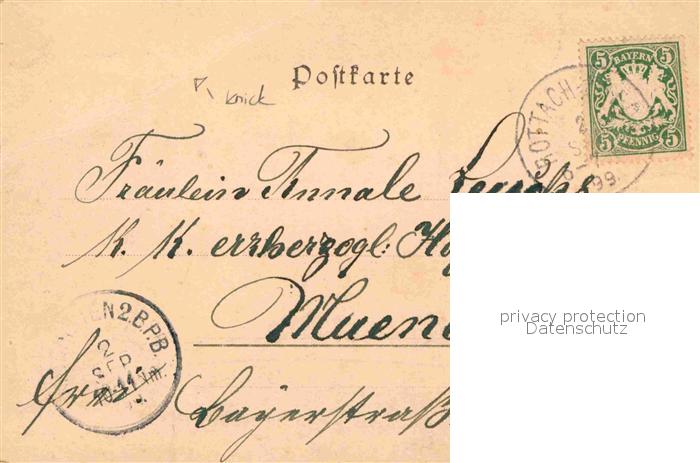 Postkarte
knick
BAYERN
5 5
5 PFENNIG 5
ROTTACH
2
99.
Fräulein Annale
K. K. erzherzogl: Ho
Muen
2.B.P.B.
2
SEP.
Bayerstraß
privacy protection
Datenschutz